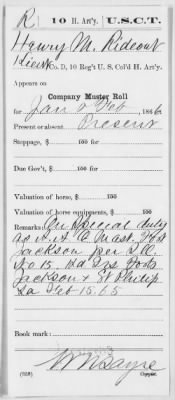 R. | 10 H. Art'y. | U.S.C.T.
Henry M. Rideout
Lieut., Co. D, 10 Reg't U. S. Col'd H. Art'y.
Appears on
Company Muster Roll
for Jan & Feb, 1866.
Present or absent Present
Stoppage, $ 100 for
Due Gov't, $ 100 for
Valuation of horse, $ 100
Valuation of horse equipments, $ 100
Remarks: On special duty
as A. A. Q. Mast. Fort
Jackson per S.O.
No 15. Hd Qrs Forts
Jackson & St Philip
La Feb 15. 65
Book mark:
(358) Copyist.